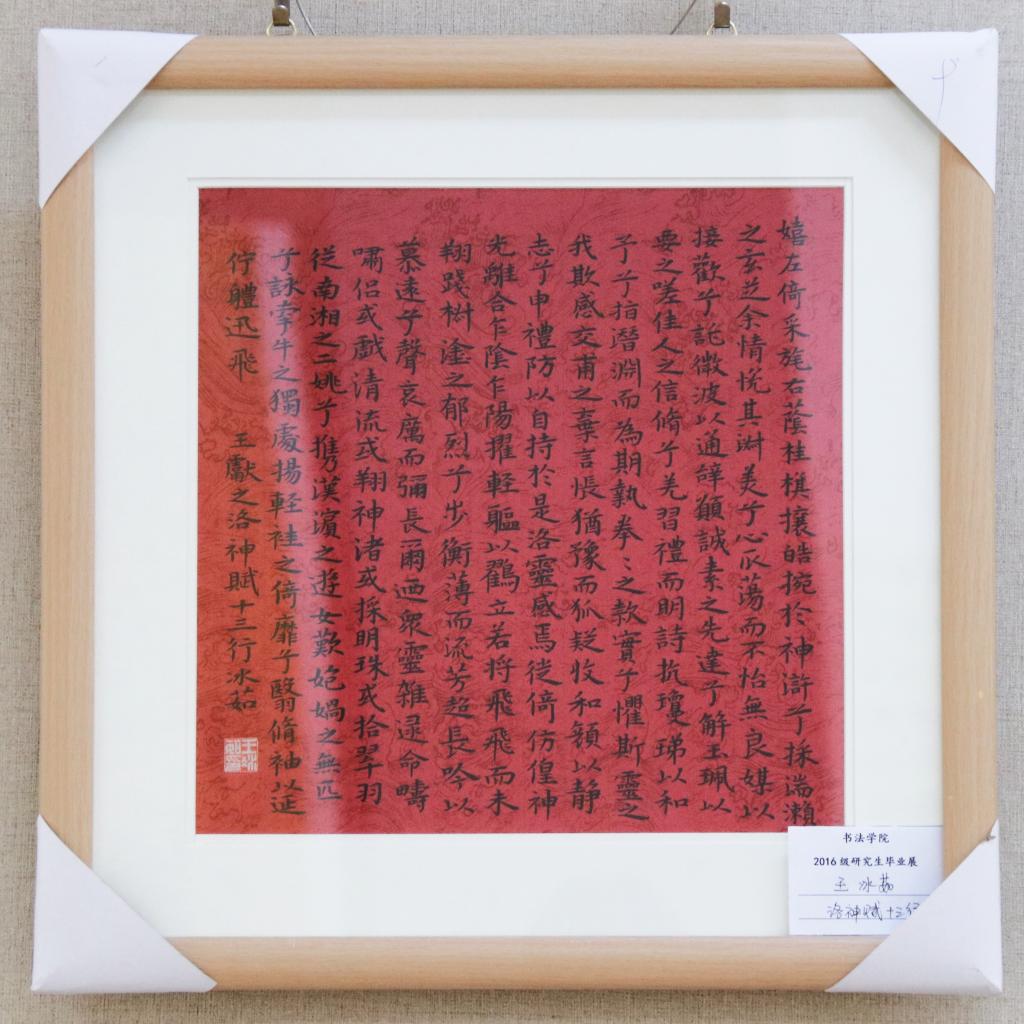 嬉左倚采旄右蔭桂棋攘皓捥於神滸兮採湍瀨
之玄芝余情悅其淑美兮心仄蕩而不怡無良媒以
接歡兮託微波以通辭願誠素之先達兮解玉珮以
要之嗟佳人之信脩兮羌習禮而明詩抗瓊珶以和
予兮指潛淵而為期執拳〻之款實兮懼斯靈之
我欺感交甫之棄言悵猶豫而狐疑收和顏以静
志兮申禮防以自持於是洛靈感焉徙倚仿偟神
光離合乍陰乍陽擢輕軀以鸖立若将飛飛而未
翔踐椒塗之郁烈兮步衡薄而流芳超長吟以
慕遠兮聲哀厲而彌長爾迺衆靈雜遝命疇
嘯侶或戲清流或翔神渚或採明珠或拾翠羽
従南湘之二姚兮攜漢濱之遊女歎媿媧之無匹
兮詠牽牛之獨處揚輕袿之倚靡兮翳脩袖以延
佇軆迅飛 王獻之洛神賦十三行冰茹
书法学院
2016级研究生毕业展
王冰茹
洛神赋十三行